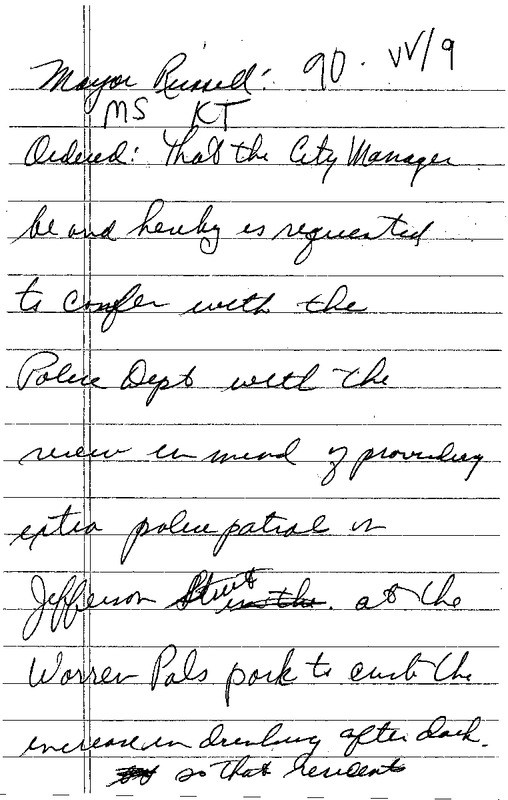 Mayor Russell: 90. VV/9
MS KT
Ordered: That the City Manager
be and hereby is requested
to confer with the
Police Dept with the
review in mind of providing
extra police patrol in
Jefferson Street at the
Warren Pals park to curb the
increase in drinking after dark.
so that resident